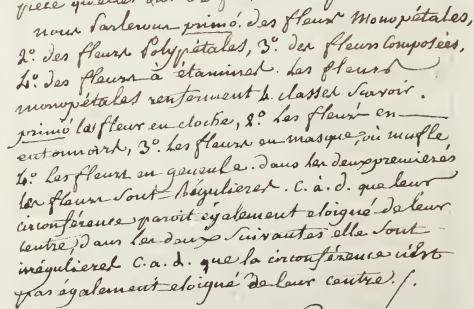 nous Parlerons primò. des fleurs monopétales,
2º. des fleurs Polypétales, 3º. des fleurs Composées,
4º. des fleurs à étamines. Les fleurs
monopétales renferment 4. classes Scavoir.
primò les fleur en cloche, 2º. Les fleurs en
entonnoirs, 3º. Les fleurs en masque, où muffle
4º. Les fleurs en gueule. dans les deux premierès
les fleurs sont régulieres. C. à. d. que leur
circonférence paroit également eloigné de leur
centre, dans les deux Suivantes elle sont
irrégulieres C. a. d. que la circonférence n'est
pas également eloigné de leur centre.